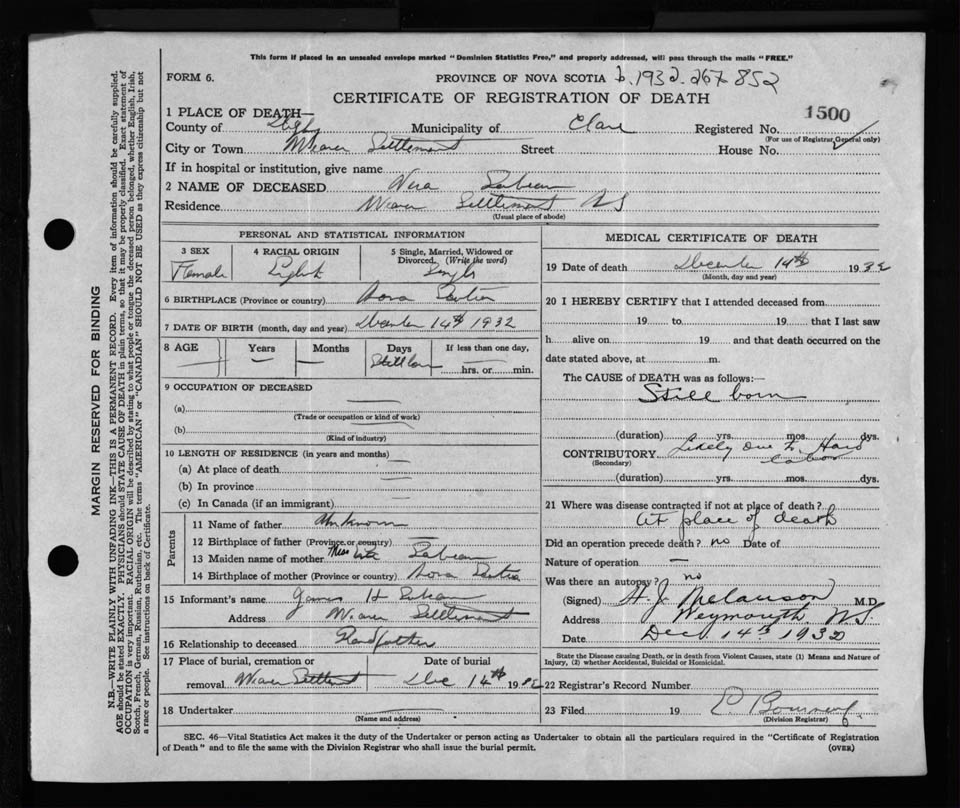 This form if placed in an unsealed envelope marked "Dominion Statistics Free," and properly addressed, will pass through the mails "FREE."
FORM 6. PROVINCE OF NOVA SCOTIA b. 1932. 267 852
CERTIFICATE OF REGISTRATION OF DEATH
1500
1 PLACE OF DEATH—
County of Digby Municipality of Clare Registered No.
(For use of Registrar General only)
City or Town Weaver Settlement Street House No.
If in hospital or institution, give name
2 NAME OF DECEASED Vera Sabean
Residence Weaver Settlement NS
(Usual place of abode)
PERSONAL AND STATISTICAL INFORMATION
3 SEX 4 RACIAL ORIGIN 5 Single, Married, Widowed or Divorced. (Write the word)
Female Single
6 BIRTHPLACE (Province or country) Nova Scotia
7 DATE OF BIRTH (month, day and year) December 14th 1932
8 AGE Years Months Days If less than one day,
— Stillborn hrs. or min.
9 OCCUPATION OF DECEASED
(a)
(Trade or occupation or kind of work)
(b)
(Kind of industry)
10 LENGTH OF RESIDENCE (in years and months)
(a) At place of death
(b) In province
(c) In Canada (if an immigrant)
Parents
11 Name of father Unknown
12 Birthplace of father (Province or country) —
13 Maiden name of mother Miss Sabean
14 Birthplace of mother (Province or country) Nova Scotia
15 Informant's name James H Sabean
Address Weaver Settlement
16 Relationship to deceased Grandfather
17 Place of burial, cremation or Date of burial
removal Weaver Settlement Dec 14th 1932
18 Undertaker
(Name and address)
MEDICAL CERTIFICATE OF DEATH
19 Date of death December 14th 1932
(Month, day and year)
20 I HEREBY CERTIFY that I attended deceased from
19 to 19 that I last saw
h alive on 19 and that death occurred on the
date stated above, at m.
The CAUSE of DEATH was as follows:—
Still born
(duration) yrs. mos. dys.
CONTRIBUTORY Likely Due to Hard
(Secondary) labor
(duration) yrs. mos. dys.
21 Where was disease contracted if not at place of death?
At place of death
Did an operation precede death? no Date of
Nature of operation —
Was there an autopsy? no
(Signed) H. J. Melanson M.D.
Address Weymouth N.S.
Date Dec 14th 1932
State the Disease causing Death, or in death from Violent Causes, state (1) Means and Nature of
Injury, (2) whether Accidental, Suicidal or Homicidal.
22 Registrar's Record Number
23 Filed 19
(Division Registrar)
SEC. 46—Vital Statistics Act makes it the duty of the Undertaker or person acting as Undertaker to obtain all the particulars required in the "Certificate of Registration
of Death" and to file the same with the Division Registrar who shall issue the burial permit. (OVER)
MARGIN RESERVED FOR BINDING
N.B.—WRITE PLAINLY WITH UNFADING INK—THIS IS A PERMANENT RECORD. Every item of information should be carefully supplied.
AGE should be stated EXACTLY. PHYSICIANS should STATE CAUSE OF DEATH in plain terms, so that it may be properly classified. Exact statement of
OCCUPATION is very important. RACIAL ORIGIN will be described by stating to what people or tongue the deceased person belonged, whether English, Irish,
Scotch, French, German, Russian, Ruthenian, etc. The terms "AMERICAN" or "CANADIAN" SHOULD NOT BE USED as they express citizenship but not
a race or people. See instructions on back of Certificate.